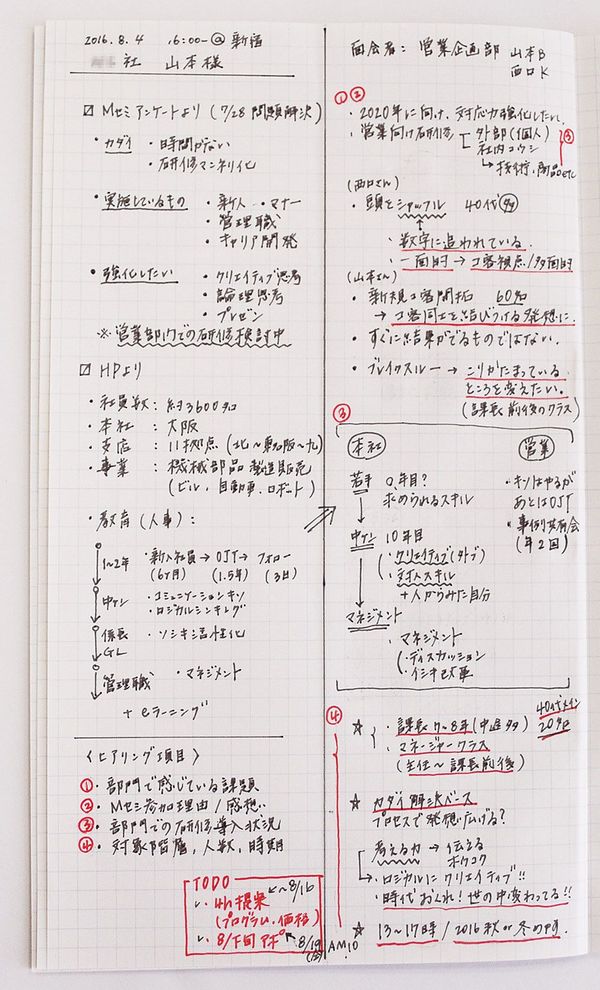 2016.8.4 16:00-@新宿
社 山本様
☑ Mセミアンケートより (7/28 問題解決)
・カダイ ・時間がない
・研修マンネリ化
・実施しているもの ・新人・・マナー
・管理職
・キャリア開発
・強化したい ・クリエイティブ思考
・論理思考
・プレゼン
※営業部内での研修検討中
☑ HPより
・社員数：約3600名
・本社：大阪
・支店：11拠点 (北〜東名阪〜九)
・事業：機械部品 製造販売
(ビル、自動車、ロボット)
・教育(人事)：
1〜2年 ・新入社員→OJT→フォロー
(6ヶ月) (1.5年) (3日)
中ケン ・コミュニケーションキソ
・ロジカルシンキング
係長 ・ソシキ活性化
GL
管理職 ・マネジメント
+ eラーニング
〈ヒアリング項目〉
①・部門で感じている課題
②・Mセミ参加理由/感想
③・部門での研修導入状況
④・対象階層、人数、時期
TODO
✓・4h提案 ←〜8/16
(プログラム、価格)
✓・8/下旬アポ ←8/19(金)AM10
面会者：営業企画部 山本B
西口K
①②
・2020年に向け、対応力強化したい。
・営業向け研修 外部(個人) ③
社内コウシ
→技術、商品etc
(西口さん)
・頭をシャッフル 40代多
・数字に追われている。
・一面的→コ客視点/多面的
(山本さん)
・新規コ客開拓 60名
→コ客同士を結びつける発想に。
・すぐに結果がでるものではない。
・ブレイクスルー→こりかたまっている
ところを変えたい。
(課長前後のクラス)
③
本社 営業
若手 0年目？ ・キソはやるが
求められるスキル あとはOJT
・事例共有会
(年2回)
中ケン 10年目
・クリエイティブ(タトブ)
・対人スキル
+人からみた自分
マネジメント
・マネジメント
・ディスカッション
・イシキ改革
④
☆ ・課長 7〜8年(中途多) 40代メイン
・マネージャークラス 20名
(主任〜課長前後)
☆ カダイ解決ベース
プロセスで発想広げる？
考える力→伝える
ホウコク
→・ロジカルにクリエイティブ!!
・時代おくれ！世の中変わってる!!
☆ 13〜17時/2016秋or冬のみ。